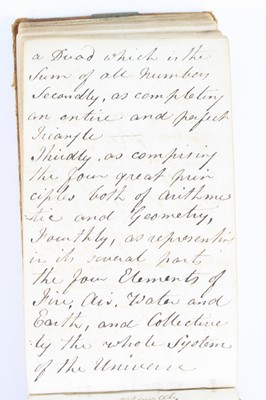 a Duad which is the
Sum of all Numbers
Secondly, as completing
an entire and perfect
Triangle
Thirdly, as comprising
the four great prin
ciples both of arithme
tic and Geometry,
Fourthly, as representing
in its several parts
the four Elements of
Fire, Air, Water and
Earth, and Collective
:ly the whole System
of the Universe